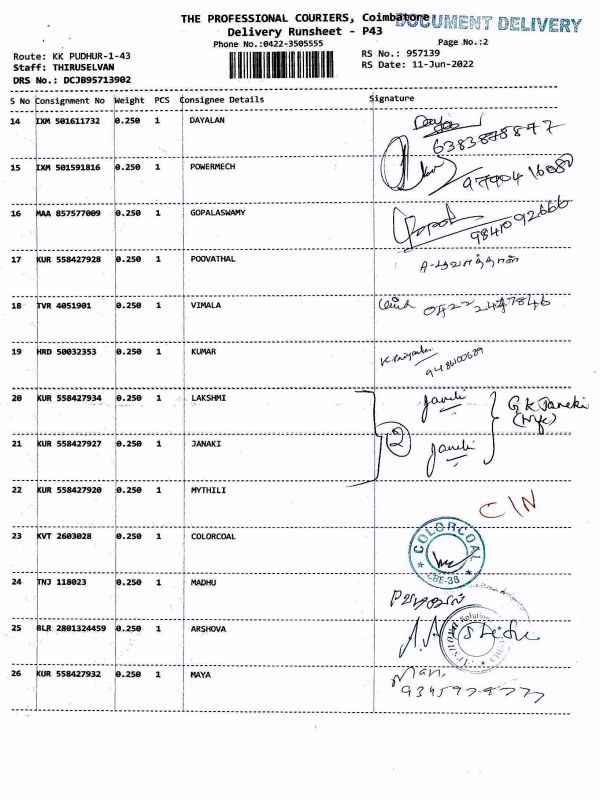 THE PROFESSIONAL COURIERS, Coimbatore
DOCUMENT DELIVERY
Delivery Runsheet - P43
Phone No.:0422-3505555
Page No.:2
Route: KK PUDHUR-1-43
RS No.: 957139
Staff: THIRUSELVAN
RS Date: 11-Jun-2022
DRS No.: DCJB95713902
S No Consignment No Weight PCS Consignee Details Signature
14 IXM 501611732 0.250 1 DAYALAN
6383878877
15 IXM 501591816 0.250 1 POWERMECH
9790416080
16 MAA 857577009 0.250 1 GOPALASWAMY
9841092666
17 KUR 558427928 0.250 1 POOVATHAL
18 TVR 4051901 0.250 1 VIMALA
0422 2447846
19 HRD 50032353 0.250 1 KUMAR
9486100689
20 KUR 558427934 0.250 1 LAKSHMI Janaki
2 G K Janaki
(Wife)
21 KUR 558427927 0.250 1 JANAKI Janaki
22 KUR 558427920 0.250 1 MYTHILI C/N
23 KVT 2603028 0.250 1 COLORCOAL
COLORCOAL
CBE-38
24 TNJ 118023 0.250 1 MADHU
25 BLR 2801324459 0.250 1 ARSHOVA
26 KUR 558427932 0.250 1 MAYA Mani